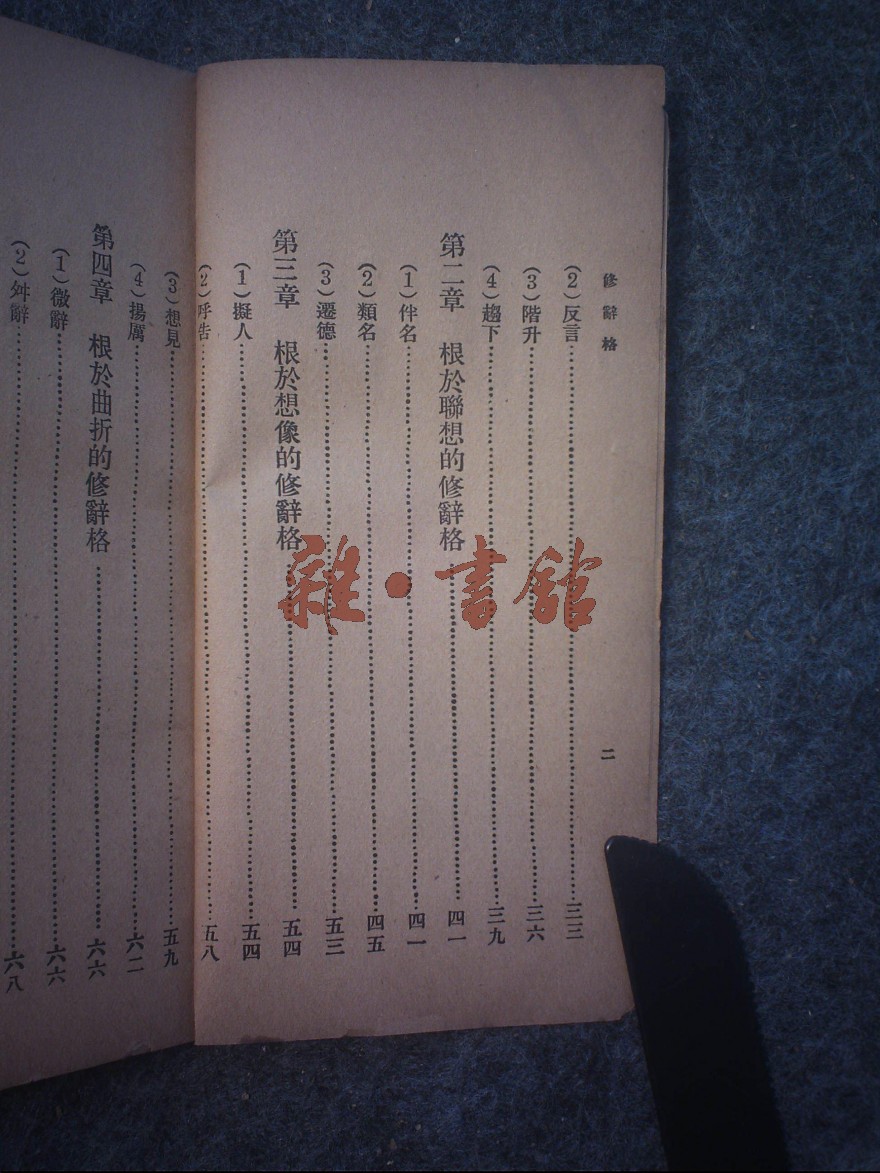 修辭格
二
(2)反言……三三
(3)階升……三六
(4)趨下……三九
第二章　根於聯想的修辭格……四一
(1)伴名……四一
(2)類名……四五
(3)遷德……五三
第三章　根於想像的修辭格……五四
(1)擬人……五四
(2)呼告……五八
(3)想見……五九
(4)揚厲……六二
第四章　根於曲折的修辭格……六六
(1)微辭……六六
(2)舛辭……六八
雜·書館